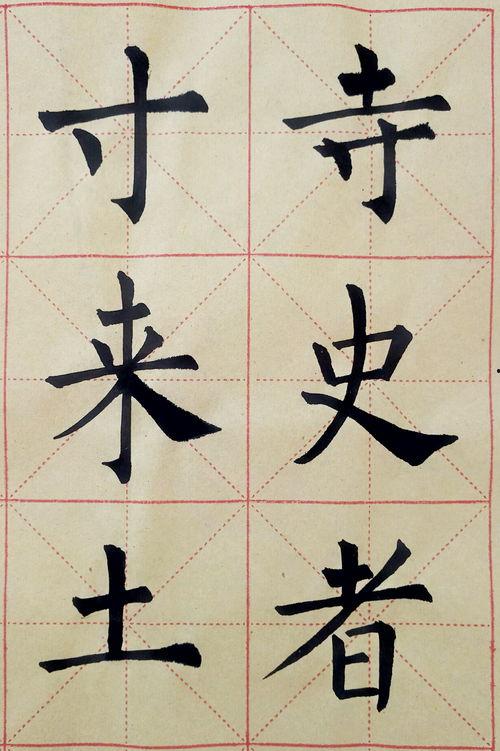 寺史者
寸来土